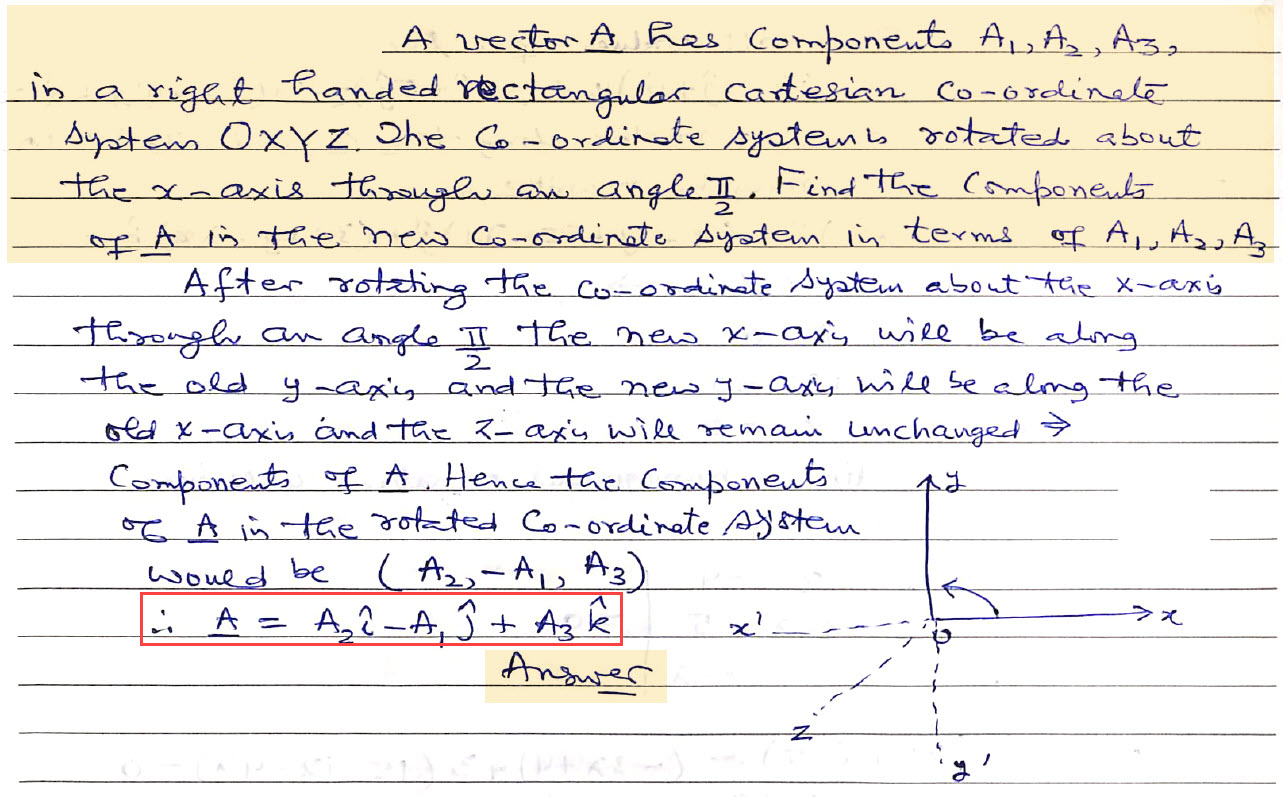 A vector A has Components A₁, A₂, A₃,
in a right handed rectangular cartesian co-ordinate
system OXYZ. The Co-ordinate system is rotated about
the x-axis through an angle π/2. Find the Components
of A in the new Co-ordinate system in terms of A₁, A₂, A₃
After rotating the co-ordinate system about the x-axis
through an angle π/2 the new x-axis will be along
the old y-axis and the new y-axis will be along the
old x-axis and the z-axis will remain unchanged ⇒
Components of A. Hence the Components
of A in the rotated Co-ordinate system
would be (A₂, -A₁, A₃)
∴ A = A₂î - A₁ĵ + A₃k̂
Answer
y
x
x'
O
z
y'